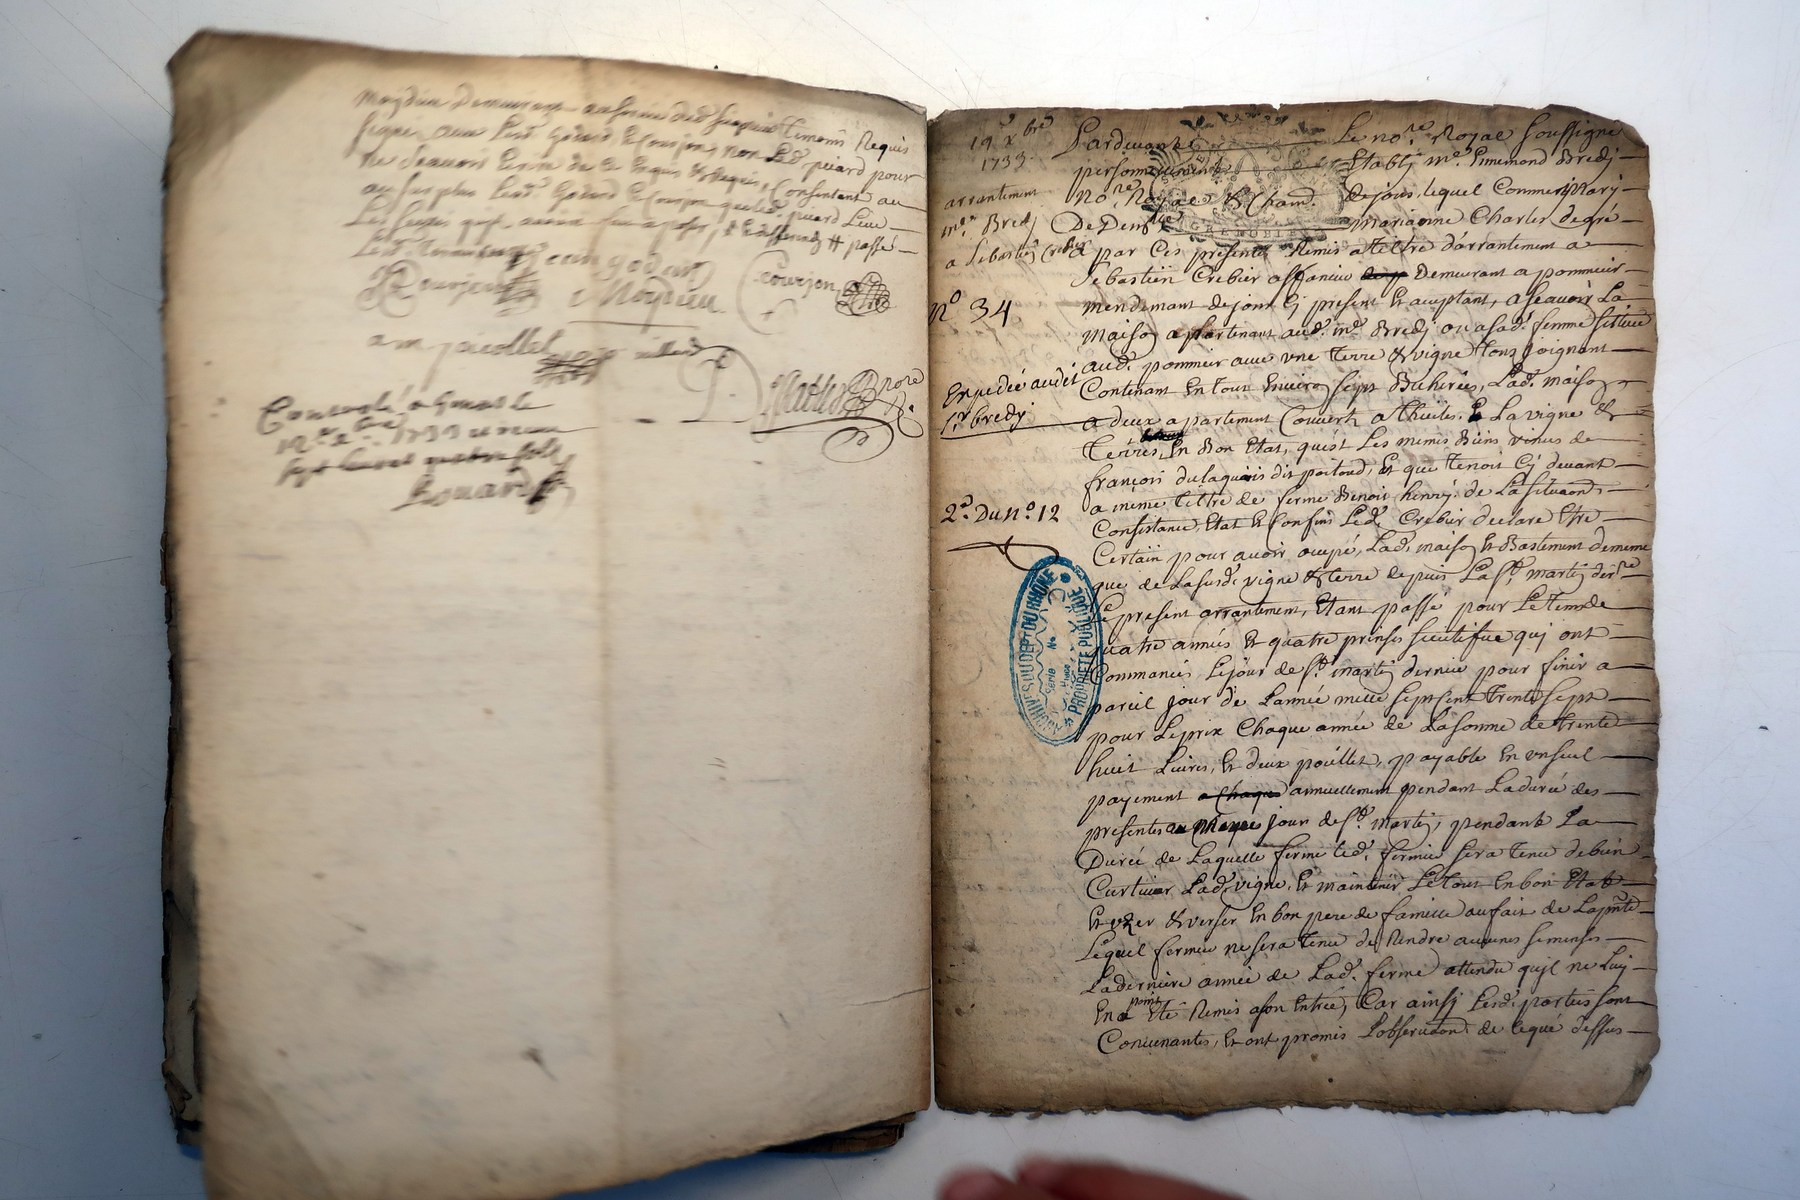 moydieu demeurant
signés avec Lesd. Godard & Courjon, non Led. picard pour
ne Scavoir Ecrire de ce Enquis & Requis, Consentant au
au surplus Lesd. Godard & Courjon
passé
jean godard Courjon
Bourjeat Moydieu
a m jacollet
Controlé a
1733
sept livres quatre sols
Rouard
19e xbre
1733
arrantement
me. Bredj
a sebastien Crebier
No 34
Expediée audit
sr. bredj
2d. Du no. 12
Pardevant Le nore. Royal soussigné
personnellement Etablj me. Ennemond Bredj
nore. Royal & Cham. dejous, lequel Comme Marj
De Denlle GRENOBLE marianne Charles degré
a par Ces presentes Remis a tiltre d'arrantement a
Sebastiin Crebier affaneur Demeurant a pommier
mendemant dejous Cj present Et aceptant, ascavoir La
maison apartenant aud. me. Bredj ou asad. femme sittuée
aud. pommier avec vne terre & vigne tout joignant
Contenant En tout Environ sept Bicherées, Lad. maison
a deux apartement Couvert a thuiles. Et La vigne &
Térres, En Bon Etat, quest Les memes Biens venus de
françois dulaquais dit poitoud, Et que tenoit Cj devant
a méme tiltre de ferme Benoit henry. de La situaon.
Consistance, Etat & Confins Led. Crebier declare Etre
Certain pour avoir ocupé, Lad. maison Et Bastement dememe
que de Lasusd. vigne & terre depuis La st. martin derre.
Le present arrantement, Etant passé pour Le tems de
quatre années Et quatre prinses
Commancés Le jour de st. martin dernier pour finir a
pareil jour de Lannée mille sept Cent trente sept
pour Le prix Chaque année de La somme de trente
huit Livres, Et deux poullet, payable En vn seul
payement a Chaque annuellement pendant La durée des
presentes jour de st. martin, pendant La
Durée de Laquelle ferme led. fermier sera tenu de bien
Cultiver Lad. vigne, Et maintenir Le tout En bon Etat
Et vzer & verser En bon pere de famille au fait de La pnte.
Lequel fermier ne sera tenu de Rendre aucunes semenses
La derniere année de Lad. ferme attendu qujl ne Luy
En a point Eté Remis a son Entrée, Car ainsy Lesd. parties sont
Convenantes, Et ont promis L'observaon. de ce que dessus
ARCHIVES DU DEPT DU RHÔNE
Série No
PROPRIÉTÉ PUBLIQUE